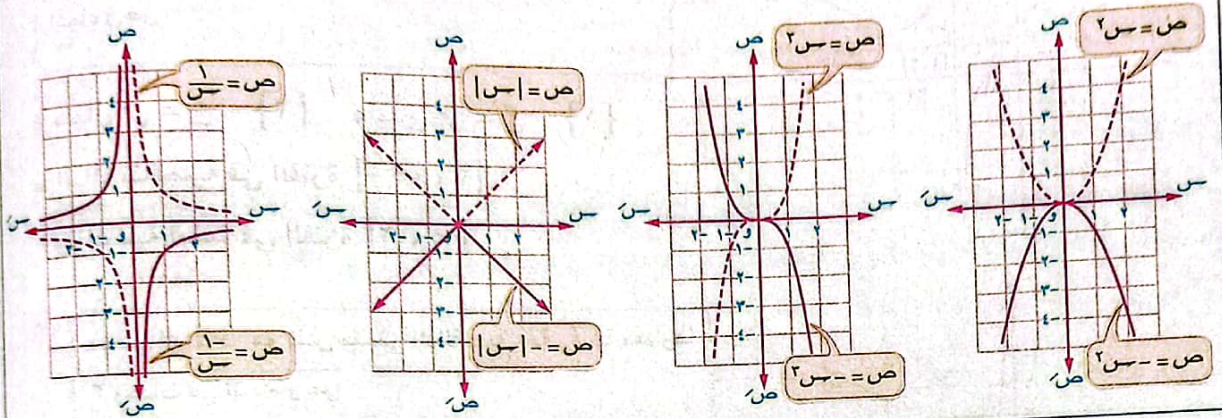 ص
ص = س٢
٤
٣
٢
١
س
سَ
-٢
-١
و
١
٢
-١
-٢
-٣
-٤
ص = -س٢
صَ
ص
ص = س٣
٤
٣
٢
١
س
سَ
-٢
-١
و
١
٢
-١
-٢
-٣
-٤
ص = -س٣
صَ
ص
ص = |س|
٤
٣
٢
١
س
سَ
-٢
-١
و
١
٢
-١
-٢
-٣
-٤
ص = -|س|
صَ
ص
ص = ١/س
٤
٣
٢
١
س
سَ
-٢
-١
و
١
٢
-١
-٢
-٣
-٤
ص = -١/س
صَ